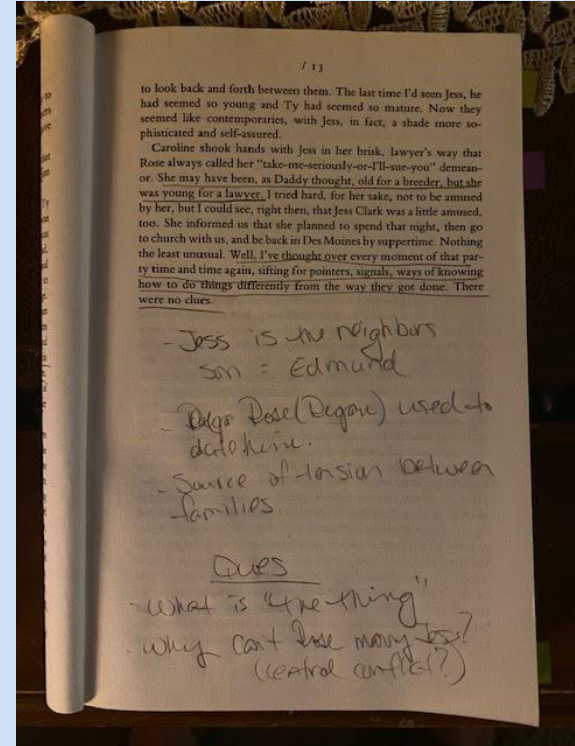 / 13
to look back and forth between them. The last time I'd seen Jess, he
had seemed so young and Ty had seemed so mature. Now they
seemed like contemporaries, with Jess, in fact, a shade more so-
phisticated and self-assured.
Caroline shook hands with Jess in her brisk, lawyer's way that
Rose always called her "take-me-seriously-or-I'll-sue-you" demean-
or. She may have been, as Daddy thought, old for a breeder, but she
was young for a lawyer. I tried hard, for her sake, not to be amused
by her, but I could see, right then, that Jess Clark was a little amused,
too. She informed us that she planned to spend that night, then go
to church with us, and be back in Des Moines by suppertime. Nothing
the least unusual. Well, I've thought over every moment of that par-
ty time and time again, sifting for pointers, signals, ways of knowing
how to do things differently from the way they got done. There
were no clues.
- Jess is the neighburs
son = Edmund
- Rose (Regan) used to
date him.
- Source of tension between
families.
Ques
- What is "the thing"
- Why can't Rose marry Jess?
(central conflict?)